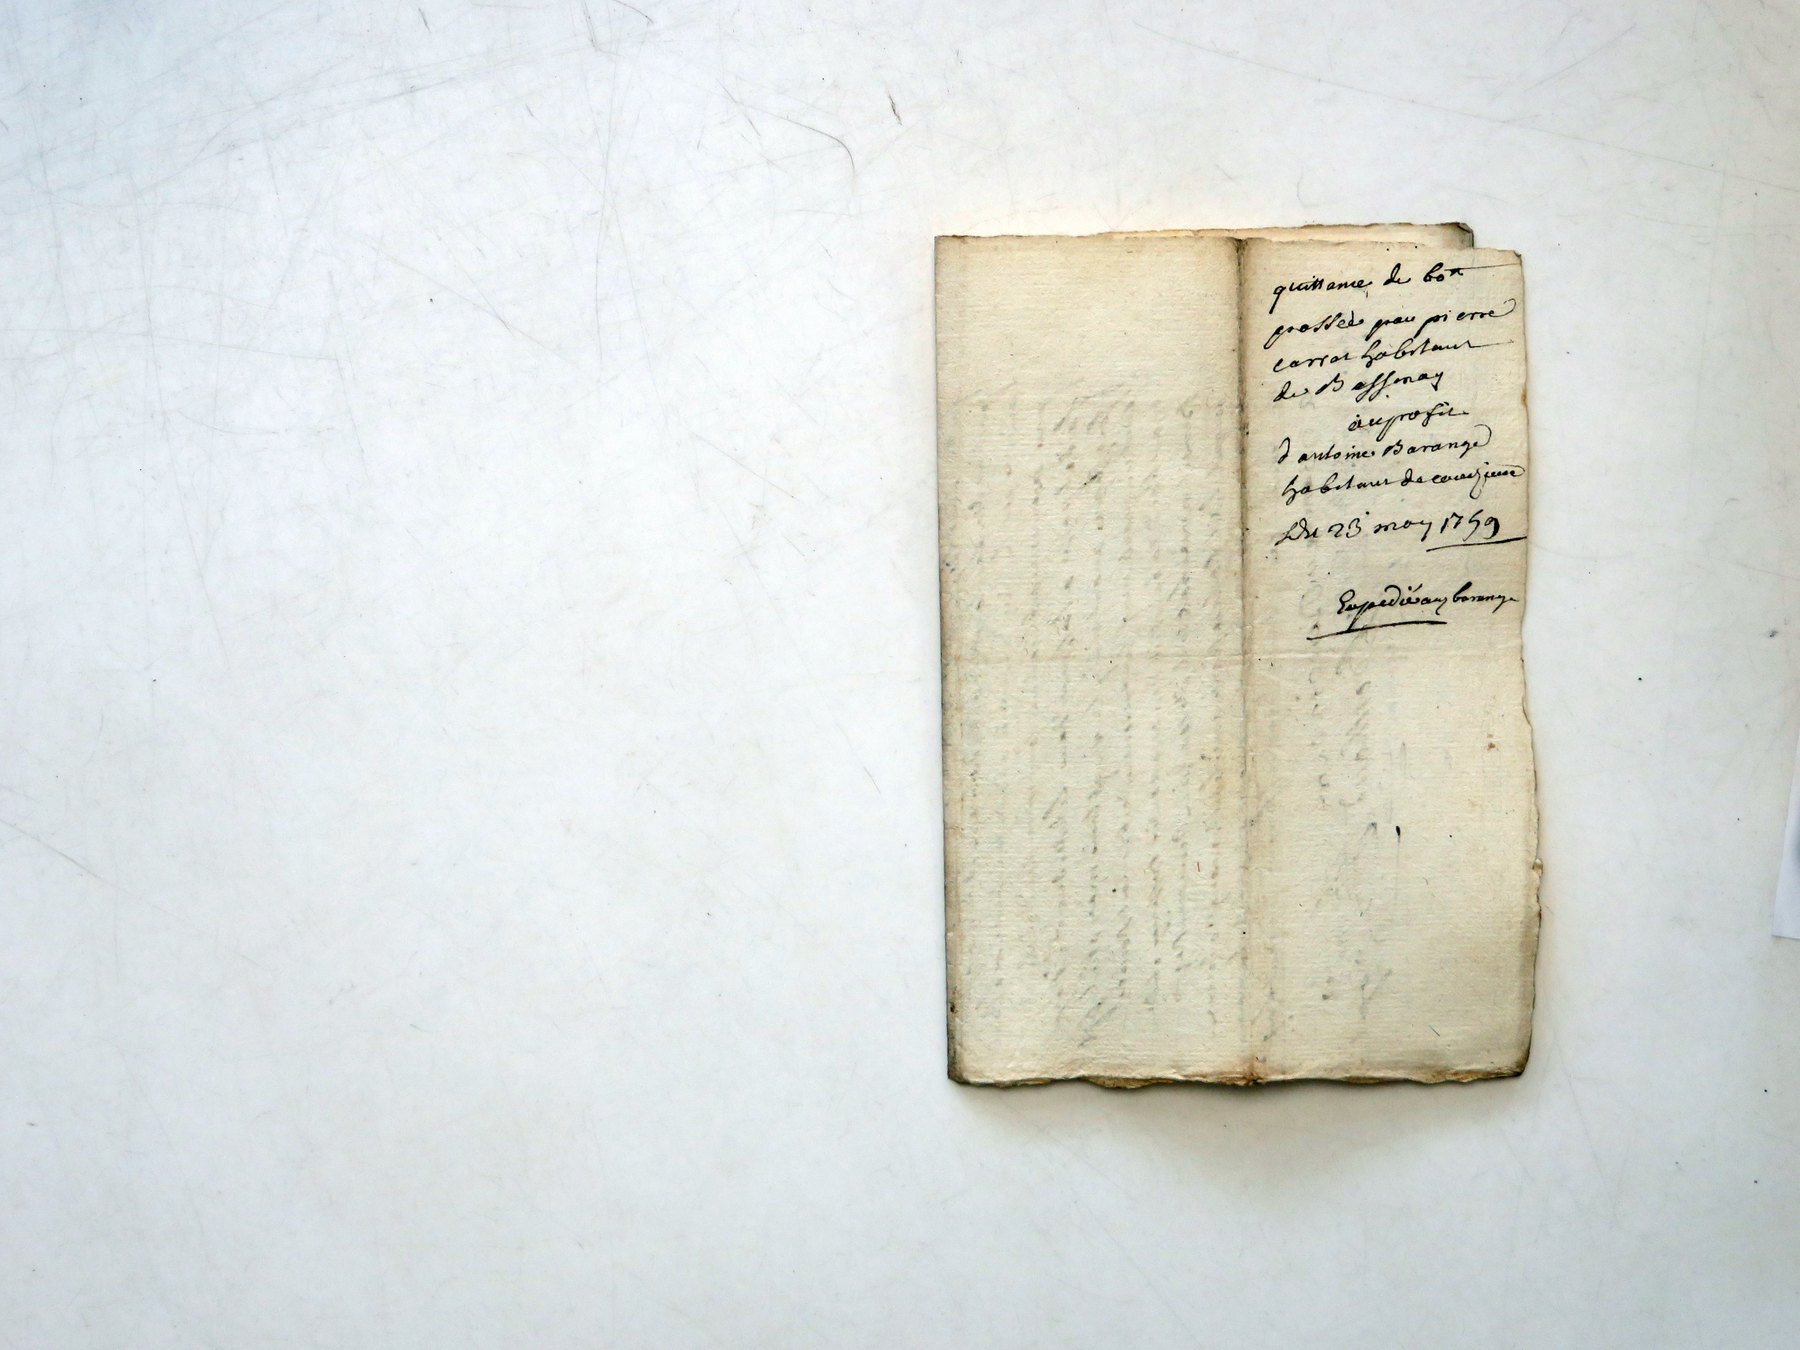 quittance de 60ᵗᵗ
passée par pierre
carrot habitant
de Bassenay
au profit
d'antoine Barange
habitant de couzieme
Du 23 may 1759
Expédié aud barange